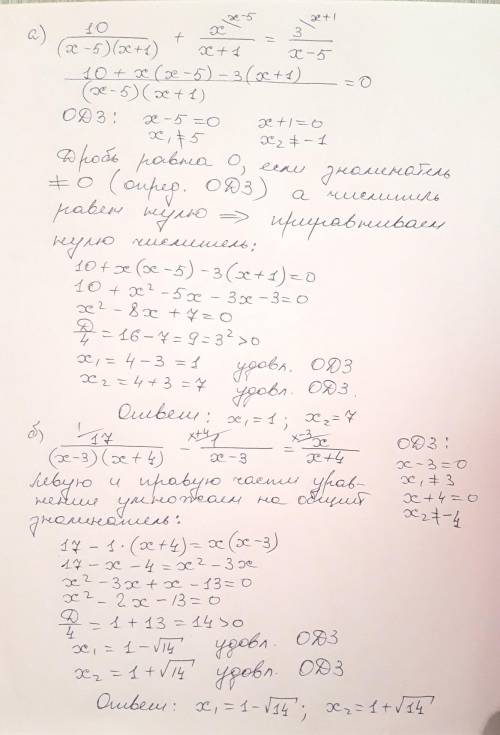 а) 10/((x-5)(x+1)) + x^(x-5)/(x+1) = 3^(x+1)/(x-5)
(10+x(x-5)-3(x+1))/((x-5)(x+1)) = 0
ОДЗ: x-5=0 x+1=0
x₁≠5 x₂≠-1
Дробь равна 0, если знаменатель
≠0 (опред. ОДЗ) а числитель
равен нулю ⇒ приравниваем
нулю числитель:
10+x(x-5)-3(x+1)=0
10+x²-5x-3x-3=0
x²-8x+7=0
Д/4=16-7=9=3²>0
x₁=4-3=1 удовл. ОДЗ
x₂=4+3=7 удовл. ОДЗ.
Ответ: x₁=1; x₂=7
б) 17^1/((x-3)(x+4)) - 1^(x+4)/(x-3) = x^(x-3)/(x+4) ОДЗ:
x-3=0
x₁≠3
x+4=0
x₂≠-4
Левую и правую части урав-
нения умножаем на общий
знаменатель:
17-1·(x+4)=x(x-3)
17-x-4=x²-3x
x²-3x+x-13=0
x²-2x-13=0
Д/4=1+13=14>0
x₁=1-√14 удовл. ОДЗ
x₂=1+√14 удовл. ОДЗ
Ответ: x₁=1-√14; x₂=1+√14